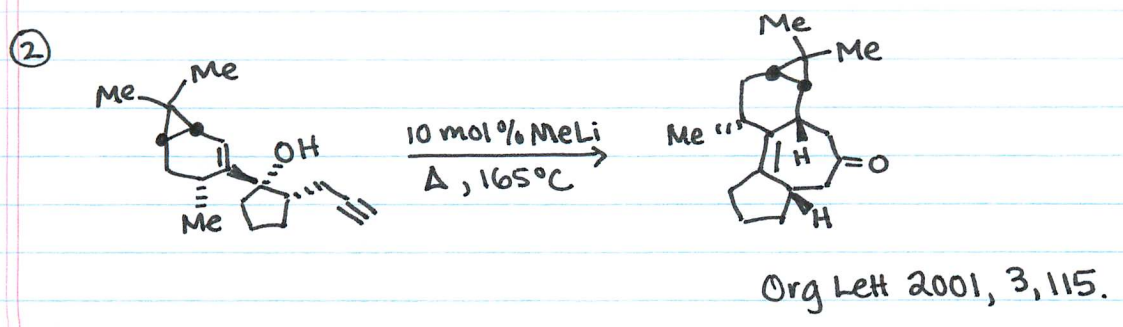 ②
Me
Me
OH
Me
10 mol % MeLi
Δ, 165°C
Me
Me
Me
H
O
H
Org Lett 2001, 3, 115.